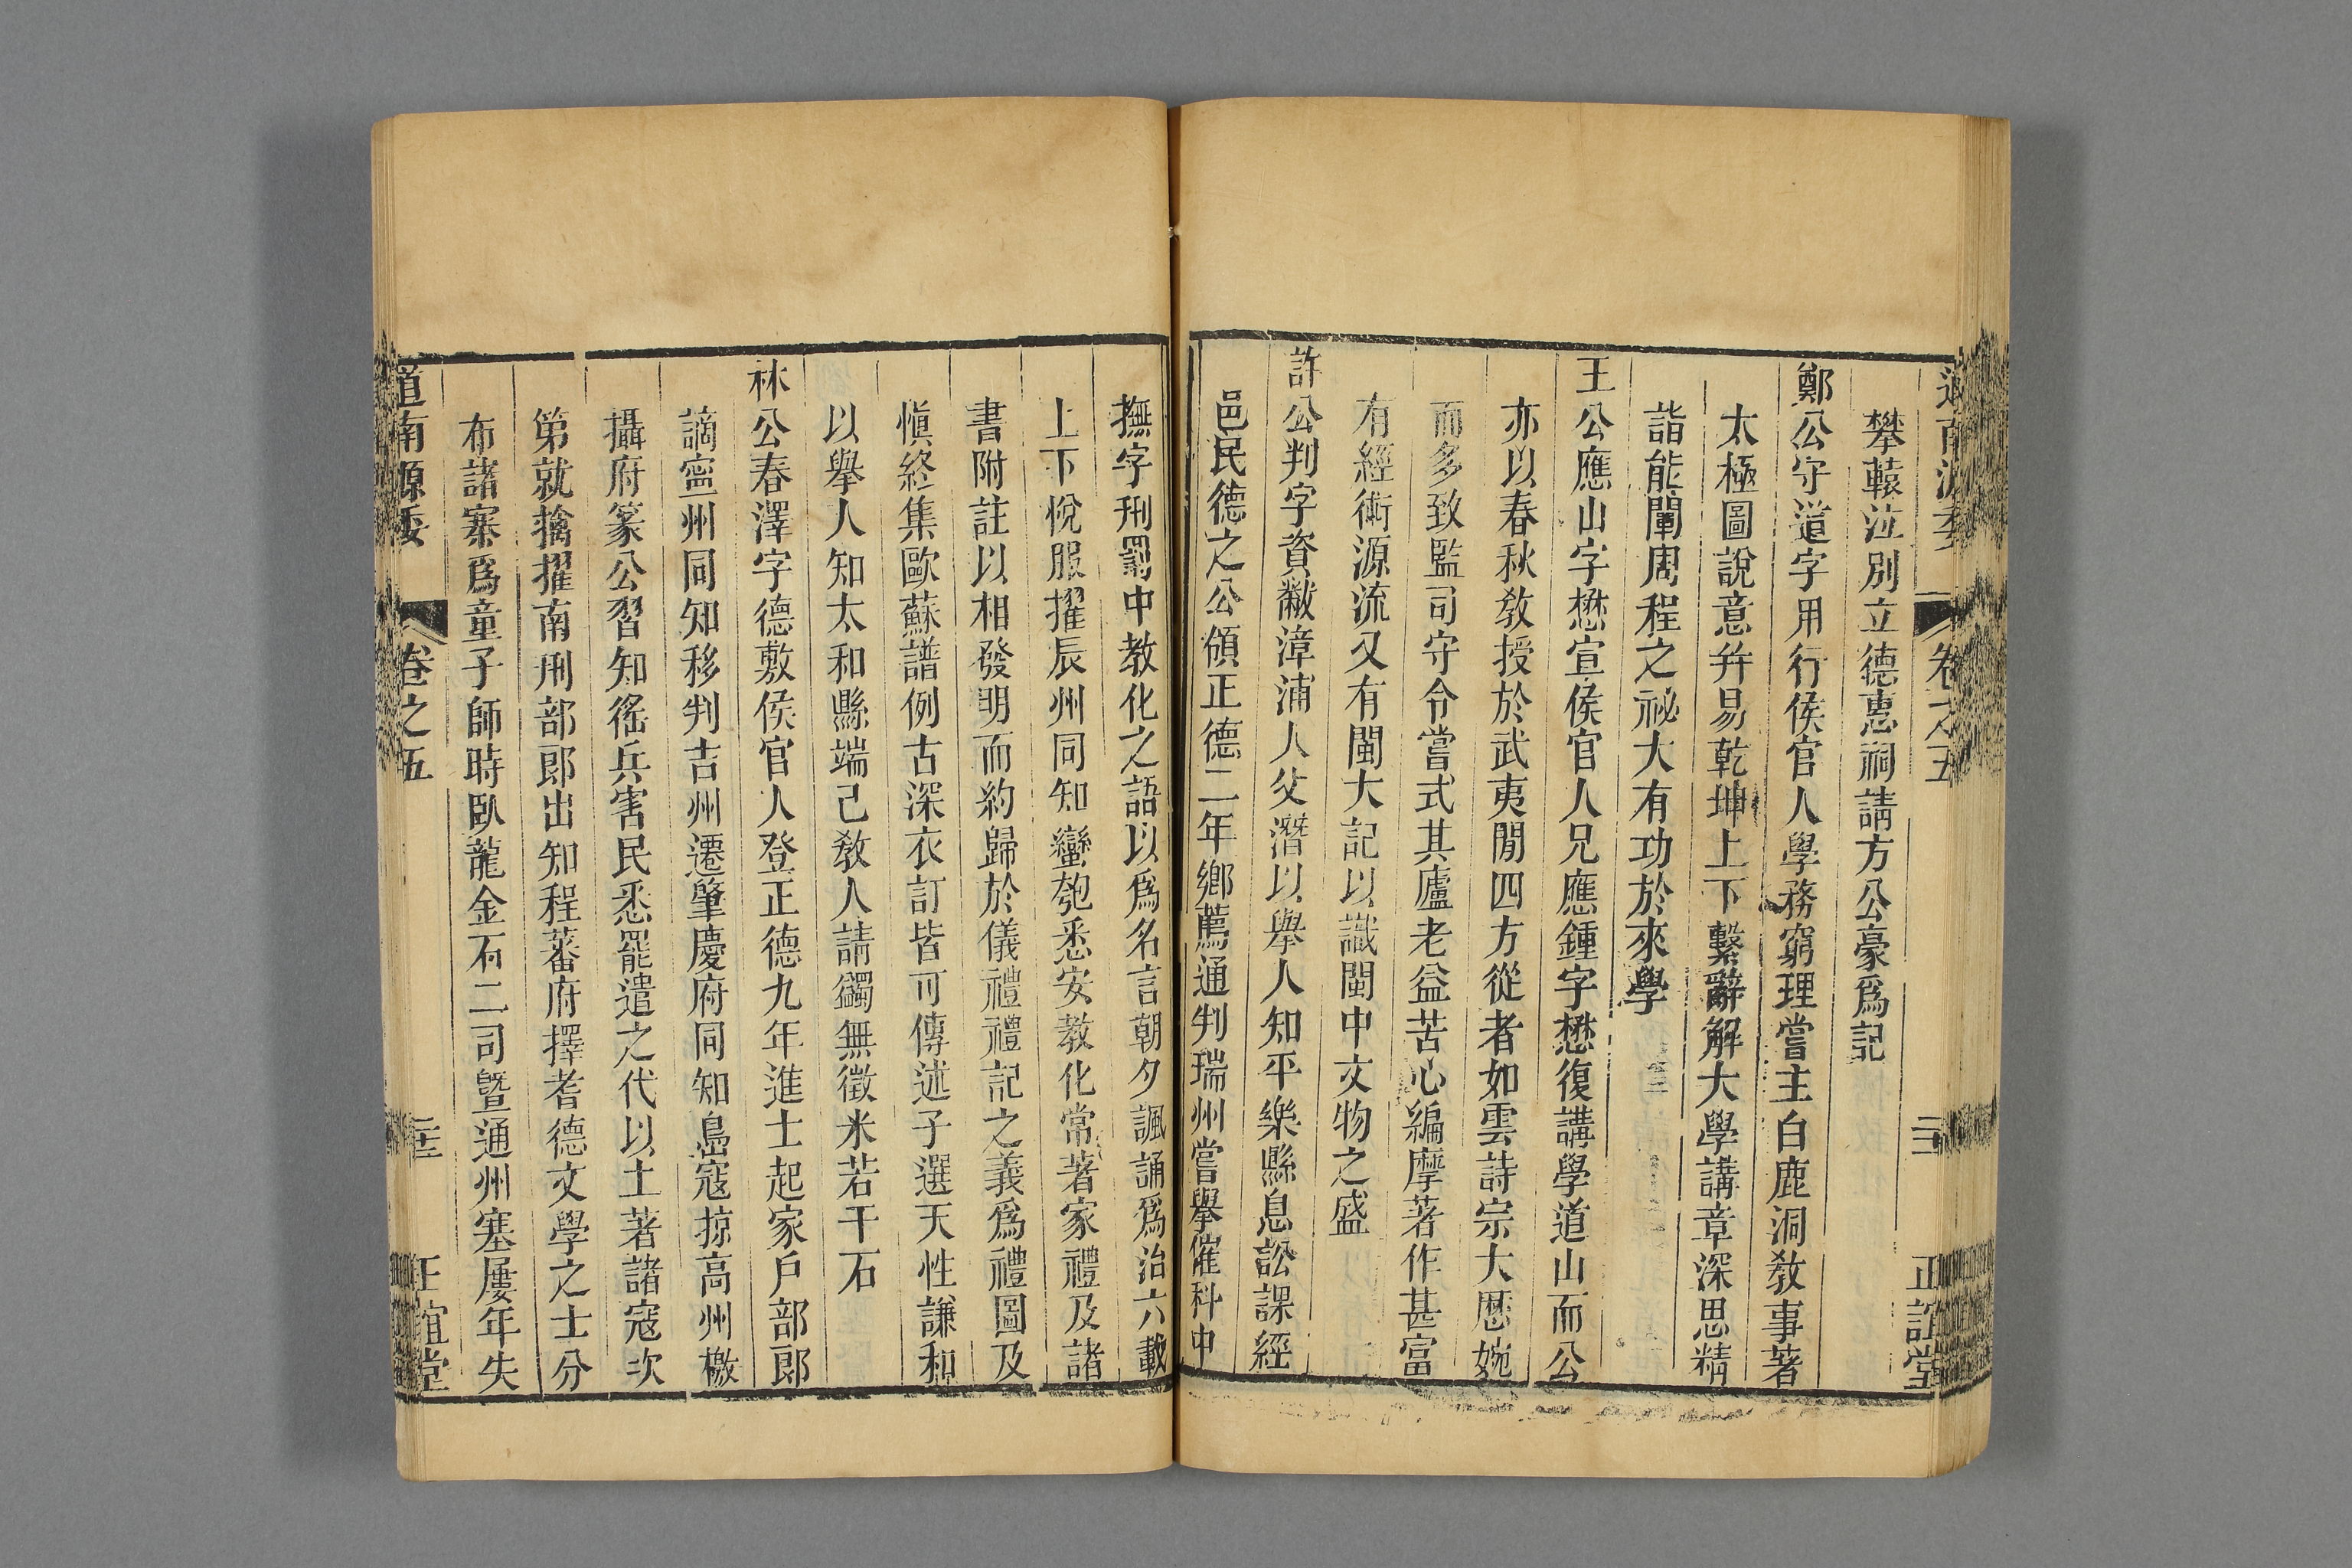 道南源委 卷之五 正誼堂
攀轅泣別立德惠祠請方公豪爲記
鄭公守道字用行侯官人學務窮理嘗主白鹿洞教事著
太極圖說意幷易乾坤上下繫辭解大學講章深思精
詣能闡周程之祕大有功於來學
王公應山字懋宣侯官人兄應鍾字懋復講學道山而公
亦以春秋敎授於武夷閒四方從者如雲詩宗大厯婉
而多致監司守令嘗式其廬老益苦心編摩著作甚富
有經術源流又有閩大記以識閩中文物之盛
許公判字資黻漳浦人父潛以舉人知平樂縣息訟課經
邑民德之公領正德二年鄉薦通判瑞州嘗舉催科中
撫字刑罰中教化之語以爲名言朝夕諷誦爲治六載
上下悅服擢辰州同知蠻㐌悉安教化常著家禮及諸
書附註以相發明而約歸於儀禮禮記之義爲禮圖及
愼終集歐蘇譜例古深衣訂皆可傳述子選天性謙和
以舉人知太和縣端己敎人請蠲無徵米若干石
林公春澤字德敷侯官人登正德九年進士起家戶部郞
謫寧州同知移判吉州遷肇慶府同知島寇掠高州檄
攝府篆公習知徭兵害民悉罷遣之代以土著諸寇次
第就擒擢南刑部郎出知程蕃府擇耆德文學之士分
布諸寨爲童子師時臥龍金石二司曁通州塞屢年失
道南源委 卷之五 正誼堂